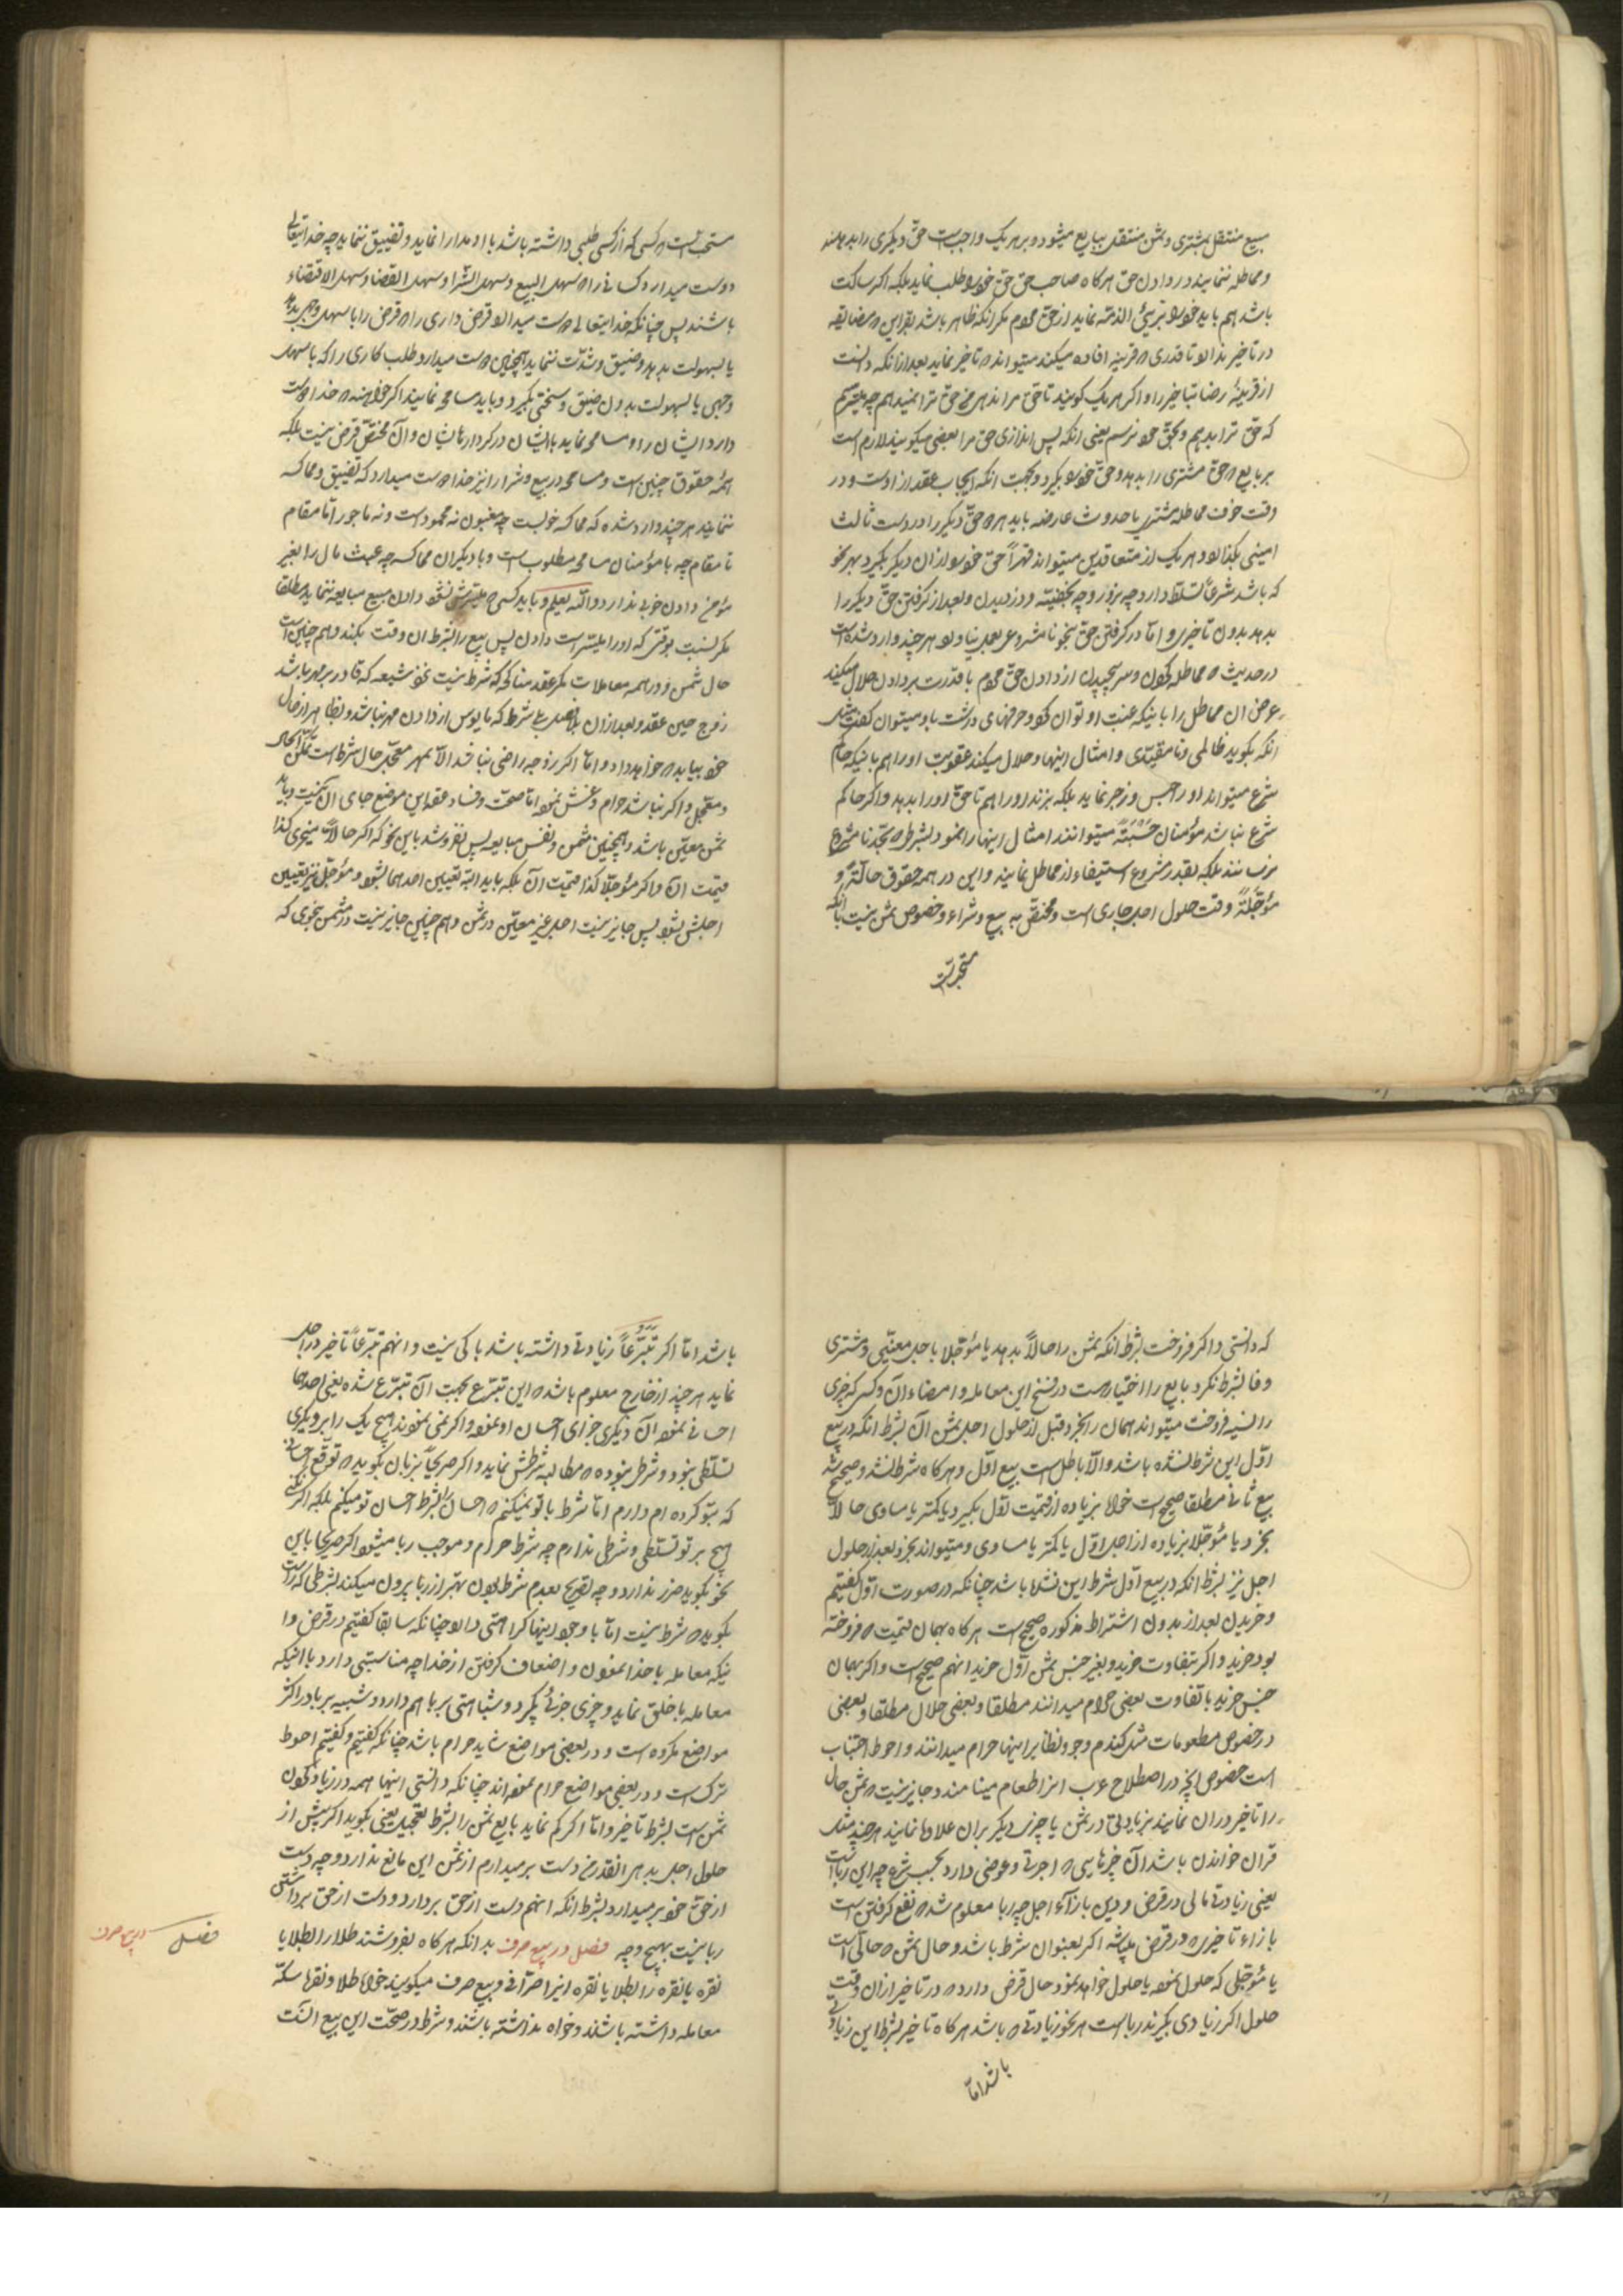 مبیع منتقل بمشتری و ثمن منتقل ببایع میشود و بر هر یک واجبست حق دیگری را بدهند
و مماطله ننمایند در دادن حق هر کاه صاحب حق حق خود را طلب نماید بلکه اکر ساکت
باشد هم باید خود را بریٔ الذمّه نماید از حق مردم مکر انکه ظاهر باشد بقراین که مضایقه
در تاخیر ندارد تا قدری که قرینه افاده میکند میتواند که تاخیر نماید بعد از انکه دانست
از قرینهٔ رضا بتاخیر را و اکر هر یک کویند تا حق مرا ندهی من حق ترا نمیدهم چه میترسم
که حق ترا بدهم و بحق خود نرسم یعنی انکه پس اندازی حق مرا بعضی میکویند لازم است
بر بایع که حق مشتری را بدهد و حق خود را بکیرد بجهت انکه ایجاب عقد از اوست و در
وقت خوف مماطله مشتری یا حدوث عارضه باید هر دو حق دیکر را در دست ثالث
امینی بکذارد و هر یک از متعاقدین میتواند قهراً حق خود را از ان دیکر بکیرد بهر نحو
که باشد شرعاً تسلّط دارد چه بزور و چه بخفیه و دزدیدن و بعد از کرفتن حق دیکر را
بدهد بدون تاخیر و امّا در کرفتن حق بنحو نامشروع بعمل نیاورد هر چند وارد شده است
در حدیث که مماطله کردن و سر پیچیدن از دادن حق مردم با قدرت بر دادن حلال میکند
عرض ان مماطل را باینکه غیبت او توان کرد و حرفهای درشت باو میتوان کفت مثل
انکه بکوید ظالمی و نامقیّدی و امثال اینها و حلال میکند عقوبت او را هم باینکه حاکم
شرع میتواند او را حبس و زجر نماید بلکه بزند او را هم تا حق او را بدهد و اکر حاکم
شرع نباشد مؤمنان حسبةً میتوانند امثال اینها را نمود بشرطی که بحد نامشروع
نرسانند بلکه بقدر مشروع استیفاء از مماطل نمایند و این در همه حقوق حالّةً و
مؤجّلةً وقت حلول اجل جاری است و مختص به بیع و شراء و خصوص ثمن نیست بلکه
مستحبّ است
مستحبّ است که کسی که از کسی طلبی داشته باشد با او مدارا نماید و تضییق ننماید چه خدایتعالی
دوست میدارد کسانی را که سهل البیع و سهل الشرا و سهل القضا و سهل الاقتضاء
باشند پس چنانکه خدایتعالی دوست میدارد قرض داری را که قرض را با سهل وجهی بدهد
یا بسهولت بدهد و ضیق و شدّت ننماید همچنین دوست میدارد طلب کاری را که با سهل
وجهی یا بسهولت بدون ضیق و سختی بکیرد و باید مسامحه نمایند اکر خواهند که خدا دوست
دارد ایشان را و مسامحه نماید با ایشان در کردارهاشان و ان مختص قرض نیست بلکه
همهٔ حقوق چنین است و مسامحه در بیع و شرا را نیز خدا دوست میدارد که تضییق و مماکسه
ننمایند هر چند وارد شده که مماکسه خوبست چه مغبون نه محمود است و نه ماجور امّا مقام
تا مقام چه با مؤمنان مسامحه مطلوبست و با دیکران مماکسه چه عبث مال را بغیر
مؤمن دادن خوبی ندارد و اللّه یعلم و باید کسی که میسّرش نشود دادن مبیع مبایعه ننماید مطلقا
مکر نسبت بوقتی که او را میسّر است دادن پس بیع را بشرط ان وقت بکند و هم چنین است
حال ثمن و در همه معاملات مکر عقد مناکح که شرط نیست نزد شیعه که قادر بر مهر باشد
زوج حین عقد و بعد از ان بشرط که مایوس از دادن مهر نباشد و بظاهر از حال
خود بیابد که خواهد داد و امّا اکر زوجه راضی نباشد الّا بمهر معجّل حال شرط است تمکّن حال
و معجّل و اکر نباشد حرام و غش نموده امّا صحّت و فساد عقد این موضع جای ان نیست و باید
ثمن معیّن باشد و همچنین مثمن و نفس مبایعه پس نفروشد باین نحو که اکر حالاً میخری کذا
قیمت ان و اکر مؤجّلاً کذا قیمت ان بلکه باید البتّه تعیین احدهما بشود و مؤجّل نیز تعیین
اجلش بشود پس جایز نیست اجل غیر معیّن در ثمن و هم چنین جایز نیست در مثمن بنحوی که
که دانستی و اکر فروخت بشرط انکه ثمن را حالاً بدهد یا مؤجّلا باجل معیّنی و مشتری
وفا بشرط نکرد بایع را اختیار هست در فسخ این معامله و امضاء ان و کسی که چیزی
را نسیه فروخت میتواند همان را بخرد قبل از حلول اجل بثمن ان بشرط انکه در بیع
اوّل این شرط نشده باشد و الّا باطل است بیع اوّل و هر کاه شرط نشد و صحیح شد
بیع ثانی مطلقا صحیح است خواه بزیاده از قیمت اوّل بکیرد یا کمتر یا مساوی حالاً
بخرد یا مؤجّلا بزیاده از اجل اوّل یا کمتر یا مساوی و میتواند بخرد بعد از حلول
اجل نیز بشرط انکه در بیع اوّل شرط این نشده باشد چنانکه در صورت اوّل کفتیم
و خریدن بعد از بدون اشتراط مذکوره صحیح است هر کاه بهمان قیمت که فروخته
بود خرید و اکر بتفاوت خرید و بغیر جنس ثمن اوّل خرید انهم صحیح است و اکر بهمان
جنس خرید با تفاوت بعضی حرام میدانند مطلقا و بعضی حلال مطلقا و بعضی
در خصوص مطعومات مثل کندم و جو و نظایر اینها حرام میدانند و احوط اجتناب
است خصوص انچه در اصطلاح عرب انرا طعام مینامند و جایز نیست که ثمن حال
را تاخیر در ان نمایند بزیادتی در ثمن یا چیزی دیکر بران علاوه نمایند هر چند مثل
قران خواندن باشد ان چیز مادامی که اجرتی و عوضی دارد بحسب شرع چه این رباست
یعنی زیادتی مالی در قرض و دین بازاء اجل چه ربا معلوم شد که نفع کرفتن است
بازاء تاخیری که در قرض میباشد اکر بعنوان شرط باشد و حال ثمن که حالّی است
یا مؤجّلی که حلول نموده یا حلول خواهد نمود حال قرض دارد که در تاخیر از ان وقت
حلول اکر زیادی بکیرند رباست هر نحو زیادتی که باشد هر کاه تاخیر بشرط این زیادتی
باشد امّا
باشد امّا اکر تبرّعاً زیادتی داشته باشد باکی نیست و انهم تبرّعاً تاخیر در اجل
نماید هر چند از خارج معلوم باشد که این تبرّع بجهت ان تبرّع شده یعنی احدهما
احسانی نموده ان دیکری جزای احسان او نموده و اکر نمی نمودند هیچ یک را بر دیکری
تسلّطی نبود و شرطی نبوده که مطالبه شرطش نماید و اکر صریحاً بزبان بکوید که توقع احسانی
که بتو کرده ام دارم امّا شرط با تو نمیکنم که احسان را بشرط احسان تو میکنم بلکه اکر نکنی
هیچ بر تو تسلّطی و شرطی ندارم چه شرط حرام و موجب ربا میشود اکر صریحا باین
نحو بکوید ضرر ندارد و چه تصریح بعدم شرط بودن بهتر از ربا بیرون میکند بشرطی که راست
بکوید که شرط نیست امّا با وجود اینها کراهتی دارد چنانکه سابقا کفتیم در قرض و ا
ینکه معامله با خدا نمودن و اضعاف کرفتن از خدا چه مناسبتی دارد با اینکه
معامله با خلق نماید و چیزی جزئی بکیرد و شباهتی بربا هم دارد و شبیه بربا در اکثر
مواضع مکروه است و در بعضی مواضع شاید حرام باشد چنانکه کفتیم و کفتیم احوط
ترک است و در بعضی مواضع حرام نموده اند چنانکه دانستی اینها همه در زیاد کردن
ثمن است بشرط تاخیر و امّا اکر کم نماید بایع ثمن را بشرط تعجیل یعنی بکوید اکر پیش از
حلول اجل بدهی انقدر من دست برمیدارم از ثمن این مانع ندارد و چه دست
از حق خود برمیدارد بشرط انکه انهم دست از حق بردارد و دست از حق برداشتن
ربا نیست بهیچ وجه فصل در بیع صرف بدانکه هر کاه بفروشند طلا را بطلا یا
نقره یا نقره را بطلا یا نقره انرا صرّافی و بیع صرف میکویند خواه طلا و نقره سکّه
معامله داشته باشند و خواه نداشته باشند و شرط در صحّت این بیع انست
فصل در بیع صرف